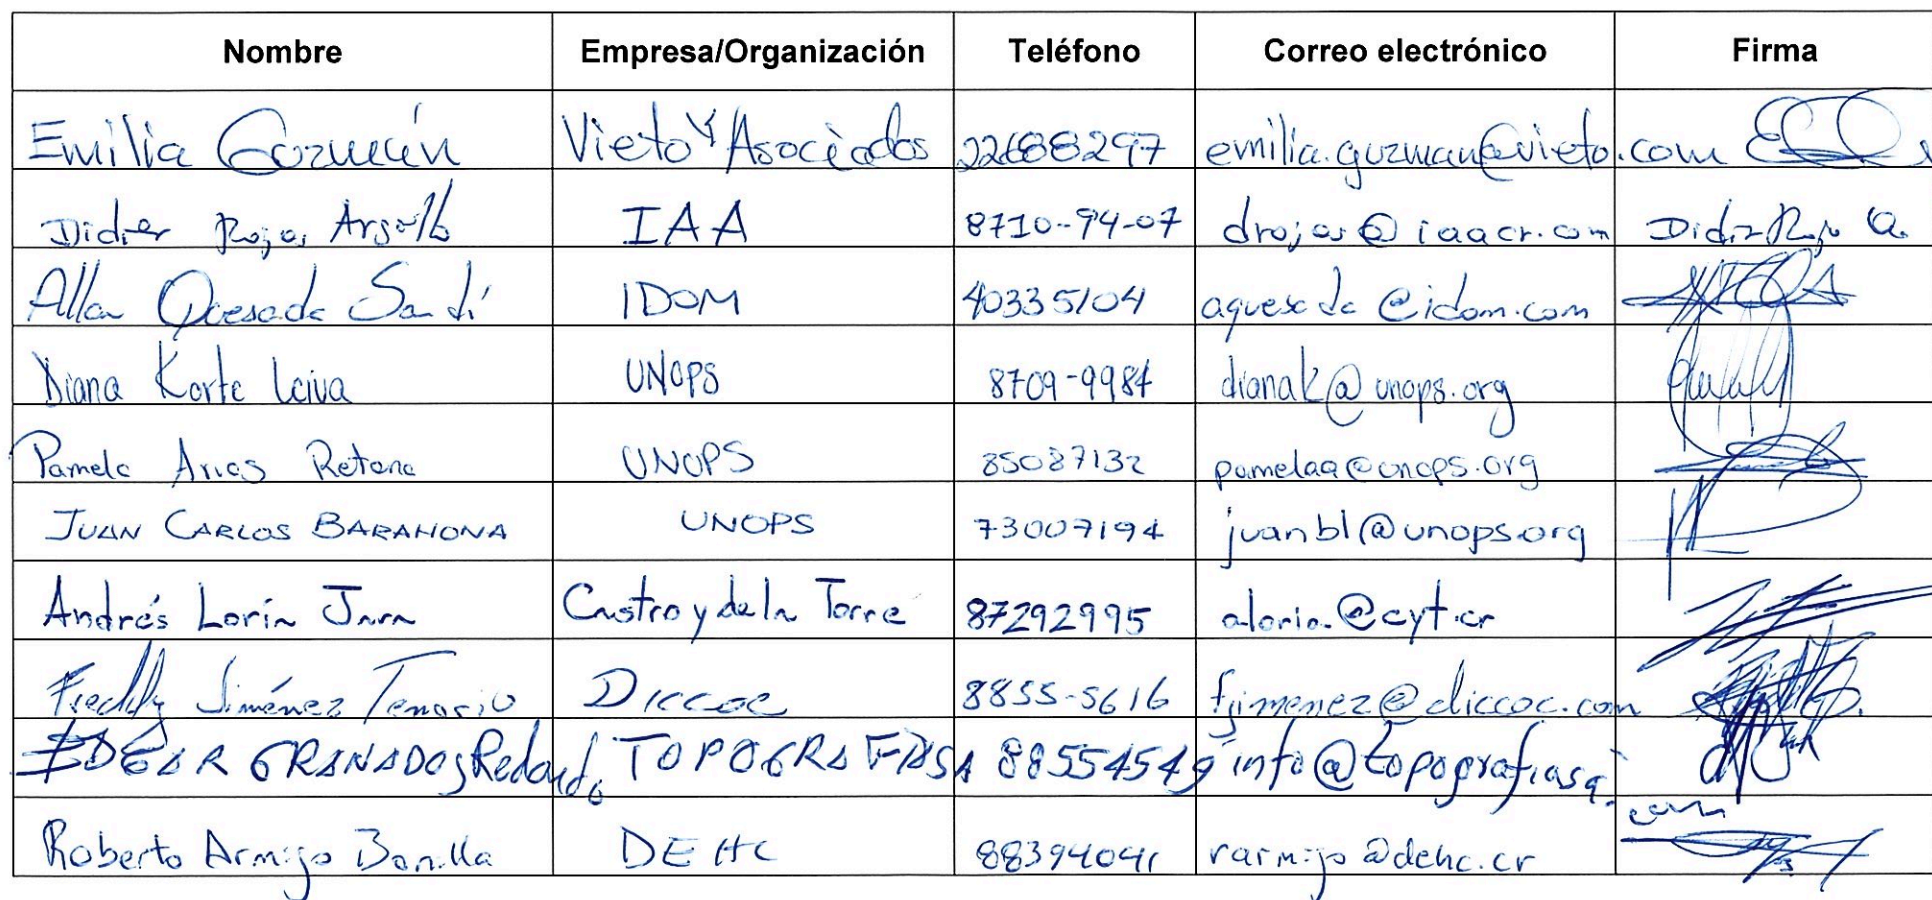 Nombre Empresa/Organización Teléfono Correo electrónico Firma
Emilia Guzmán Vieto y Asociados 22688297 emilia.guzman@vieto.com
Didier Rojas Argüello IAA 8710-94-07 drojas@iaacr.com Didier Rojas A.
Allan Quesada Sandí IDOM 40335104 aquesada@idom.com
Diana Korte Leiva UNOPS 8709-9984 dianak@unops.org
Pamela Arias Retana UNOPS 85087132 pamelaa@unops.org
JUAN CARLOS BARAHONA UNOPS 73007194 juanbl@unops.org
Andrés Loría Jara Castro y de la Torre 87292995 aloria@cyt.cr
Freddy Jiménez Tenorio Diccoc 8855-5616 fjimenez@diccoc.com
EDGAR GRANADOS Redondo TOPOGRAFIASA 88554549 info@topografiasa.
com
Roberto Armijo Bonilla DEHC 88394041 rarmijo@dehc.cr